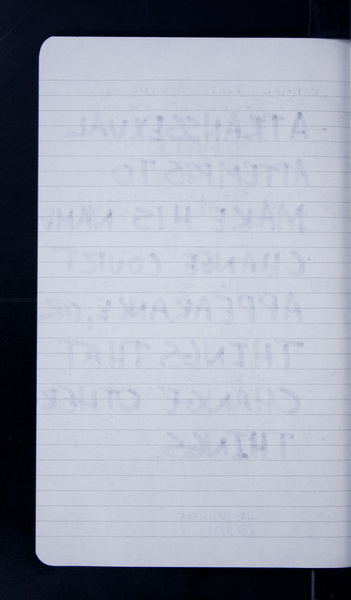 A TRANSSEXUAL
ATTEMPTS TO
MAKE HIS NAME
CHANGE COURT
APPEARANCE, OR
THINGS THAT
CHANGE OTHER
THINGS